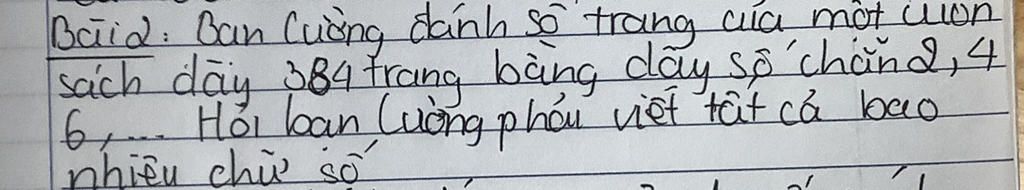 Bài 2: Bạn Cường đánh số trang của một cuốn
sách dày 384 trang bằng dãy số chẵn 2, 4
6,... Hỏi bạn Cường phải viết tất cả bao
nhiêu chữ số